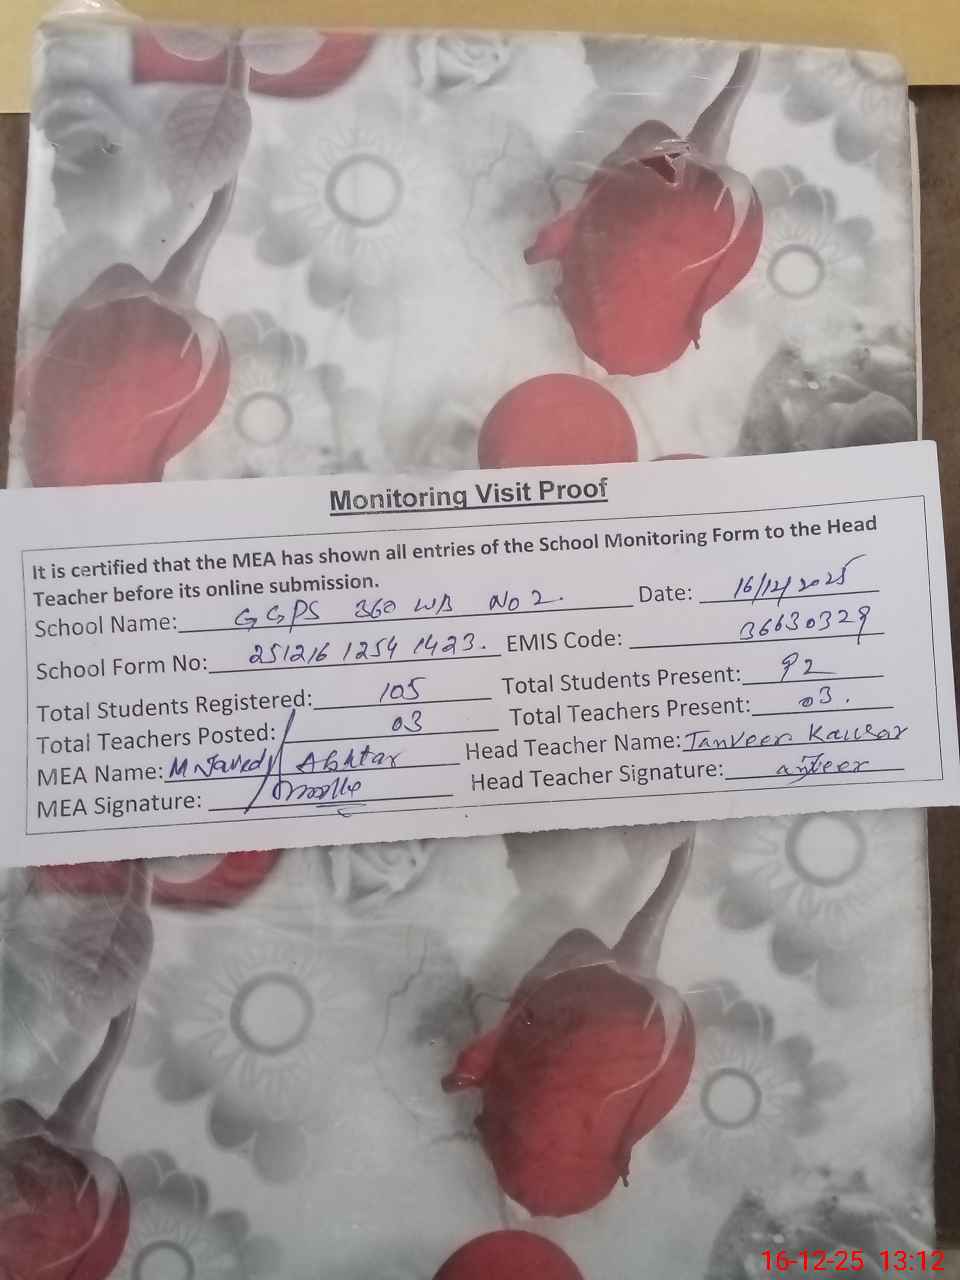 Monitoring Visit Proof
It is certified that the MEA has shown all entries of the School Monitoring Form to the Head
Teacher before its online submission.
School Name: GGPS 360 WB No 2. Date: 16/12/2025
School Form No: 251216 1254 1423. EMIS Code: 36630329
Total Students Registered: 105 Total Students Present: 92
Total Teachers Posted: 03 Total Teachers Present: 03.
MEA Name: M Javed Akhtar Head Teacher Name: Tanveer Kausar
MEA Signature: Head Teacher Signature:
16-12-25 13:12